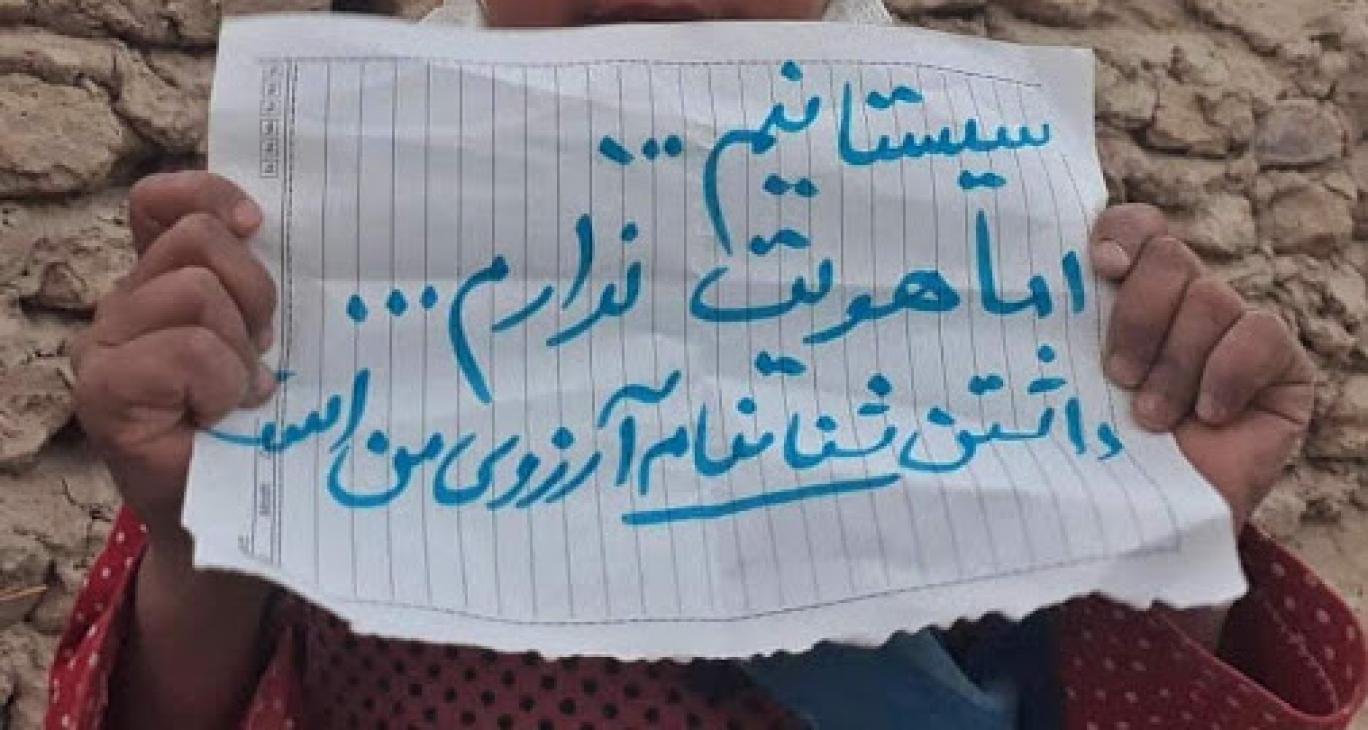 سیستانیم ...
اما هویت ندارم ...
داشتن شناسنام آرزوی من است